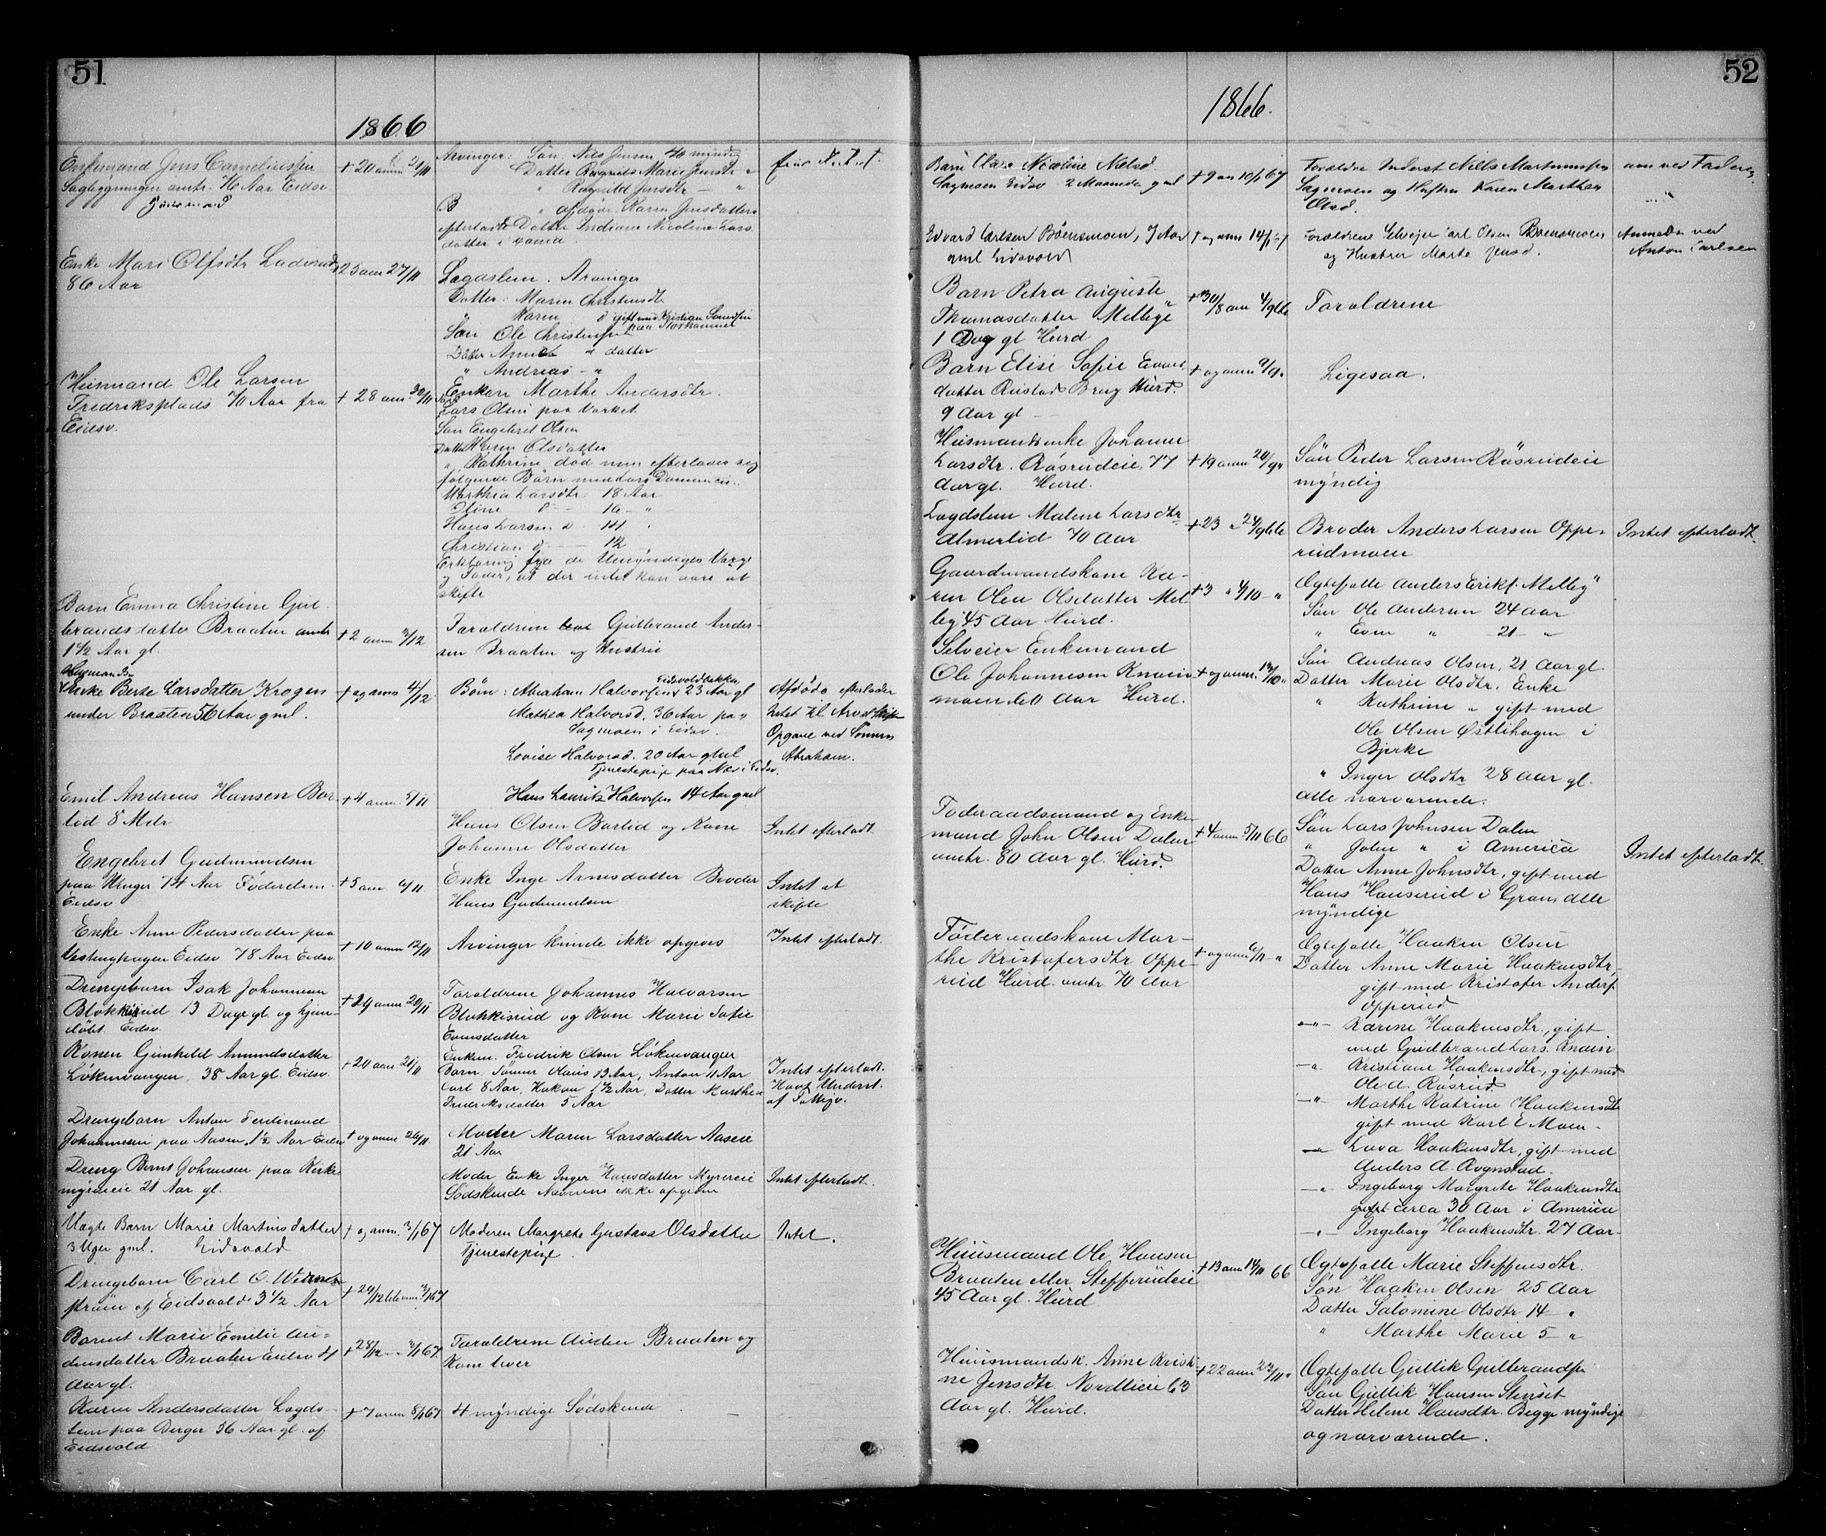 51
1866
Enkemand Jens Corneliussen
Sagløgningen omtr. 76 Aar Eidsv
+ 20 anm 21/11
Arvinger: Søn Nils Jensen 40 myndig
Datter Ragnild Marie Jensdtr "
" Ragnild Jensdtr — "
" afdøde Karen Jensdatters
efterladte Datter Indiane Nicoline Lars
datter i
Enke Mari Olfsdtr
86 Aar
25 anm 27/11
Lagdslem. Arvinger
Datter: Maren Christensdtr
" Karen d gift med Kristian
paa
Søn Ole Christensen
Datter Anne " datter
" Andreas - "
Husmand Ole Larsen
Fredriksplads 70 Aar fra
Eidsv.
+ 28 anm 30/11
Enken Marthe Andersdtr.
Lars Olsen paa Værket
Søn Engebret Olsen
Datter Karen Olsdatter
" Kathrine død men efterlader sig
følgende Børn
Marthia Larsdtr 18 Aar
Oline d - 16 - "
Hans Larsen d 14 "
Christian d - - 12
Erklæring fra de Umyndiges Værge
og Fader, at der intet kan være at
skifte
Barn Emma Christine Gul
brandsdatter Braaten omtr
1½ Aar gl.
+ 2 anm 3/12
Forældrene Gulbrand Ander-
sen Braaten og Hustrue
Enke Berte Larsdatter Krogen
under Braaten 56 Aar gml.
+ og anm 4/12
Børn: Abraham Halvorsen 23 Aar gl
Mathea Halvorsd. 36 Aar paa
Sagmoen i Eidsv.
Lovise Halvorsd. 20 Aar gml
Tjenestepige paa Næs i Eidsv.
Hans Lauritz Halvorsen 14 Aar gml
Afdøde efterlader
Intet til Arv
Opgave ved Sønnen
Abraham.
Emil Andreas Hansen Bar
lid 8 Mdr
+ 4 anm 5/11
Hans Olsen Barlid og Kone
Johanne Olsdatter
Intet efterladt.
Engebret Gudmundsen
paa Unger 74 Aar Føderdsm.
Eidsv
+ 5 anm 6/11
Enke Inge Arnesdatter Broder
Hans Gudmundsen
Intet at
skifte
Enke Anne Pedersdatter paa
Vestenghagen Eidsv 78 Aar Eidsv
+ 10 anm 12/11
Arvinger kunde ikke opgives
Intet efterladt.
Drengebarn Isak Johannesen
Blokkisrud 13 Dage gl og hjem-
døbt Eidsv.
+ 29 anm 20/11
Forældrene Johannes Halvorsen
Blokkisrud og Kone Marie Sofie
Evensdatter
Konen Gunhild Amundsdatter
Løkenvangen, 38 Aar gl. Eidsv.
+ 20 anm 21/11
Enkem. Fredrik Olsen Løkenvangen
Barn, Sønner Olaus 13 Aar, Anton 11 Aar
Carl 8 Aar, Hakon 1½ Aar, Datter Marthea
Fredriksdatter 5 Aar
Intet efterladt.
Havt Underst.
af Fattigv.
Drengebarn Anton Ferdinand
Johannesen paa Aasen, 1½ Aar Eidsv
+ og anm 26/11
Moder Maren Larsdatter Aasen
21 Aar
Dreng Bernt Johansen paa Kirke
myreeie 21 Aar gl.
Moder Enke Inger Hansdatter Myreeie
Sødskende Navnene ikke opgivne
Intet efterladt.
Uægte Barn Marie Martinsdatter
3 Uger gml. Eidsvold
+ og anm. 3/1 67
Moderen Margrete Gustava Olsdatter
Tjenestepige
Intet.
Drengebarn Carl O.
af Eidsvold 3½ Aar
+ 24/12 66 anm 3/1 67
Barnet Marie Emilie Au-
densdatter Braaten Eidsv 4
Aar gl.
+ 28/12 - 3/1 67
Forældrene Auden Braaten og
Kone lever
Karen Andersdatter Lagds-
lem paa Berger 36 Aar gl. af
Eidsvold
+ 7 anm 8/1 67
4 myndige Sødskende
52
1866.
Barn Nicoline Nilsd
Sagmoen Eidsv 2 Maaneder gml
+ 9 an 10/1 67
Forældre Inderst Nills Martinnusen
Sagmoen og Hustru Karen Marthea
Olsd.
anm ved Faderen
Edvard Carlsen Bønsmoen, 7 Aar
gml Eidsvold
+ og anm 14/1 67
Forældrene Selvejer Carl Olsen Bønsmoen
og Hustrue Marte Jensd.
Anmeldt ved
Anton Carlsen
Barn Petra Auguste
Thomasdatter Melbye
1 Dag gl Hurd
+ 30/8 anm 4/9 66
Forældrene
Barn Elise Sofie Evens
datter Rustad Brug Hurd.
9 Aar gl
+ og anm 9/9 "
Ligesaa.
Husmandsenke Johanne
Larsdtr. Røsrudeie, 77
Aar gl. Hurd.
+ 19 anm 20/9 "
Søn Peder Larsen Røsrudeie
myndig
Lagdslem Malene Larsdtr
Almerlid 70 Aar
+ 23 " 24/9 66
Broder Anders Larsen Oppe-
rudmoen
Intet efterladt.
Gaardmandskone Ka-
ren Olea Olsdatter Mel
by 45 Aar Hurd.
+ 3 " 4/10 - "
Ægtefælle Anders Eriks. Melby
Søn Ole Andersen 24 Aar
" Even " 21 - "
Selveier Enkemand
Ole Johannesen Knai
moen 60 Aar Hurd.
+ og anm. 13/10 "
Søn Andreas Olsen, 21 Aar gl
Datter Marie Olsdtr. Enke
" Kathrine " gift med
Ole Olsen Østlihagen i
Bjerke
" Inger Olsdtr 28 Aar gl.
alle nærværende.
Føderaadsmand og Enke
mand John Olsen Dalen
omtr. 80 Aar gl. Hurd.
+ 4 anm 5/11 66
Søn Lars Johnsen Dalen
" John " i America
Datter Anne Johnsdtr, gift med
Hans Hanserud i Gran alle
myndige
Intet efterladt.
Føderaadskone Mar-
the Kristofersdtr Oppe-
rud Hurd. omtr. 70 Aar
+ og anm 6/11 - "
Ægtefælle Haaken Olsen
Datter Anne Marie Haakensdtr,
gift med Kristofer Anders.
Opperud
—"— Karine Haakensdtr., gift
med Gudbrand Lars. Knain
—" Kristiane Haakensdtr, gift med
Ole A. Røsrud
—"- Marthe Katrine Haakensdtr
gift med Karl E Moen -
—" Lava Haakensdtr, gift med
Anders A. Rognstad.
—". Ingeborg Margrete Haakensdtr
gift circa 30 Aar i America
—". Ingeborg Haakensdtr. 27 Aar
Huusmand Ole Hansen
Braaten eller Steffensrudeie
45 Aar gl. Hurd
+ 13 anm 14/11 66
Ægtefælle Marie Steffensdtr.
Søn Haaken Olsen 25 Aar
Datter Salomine Olsdtr 14 - "
" Marthe Marie 5 - "
Huusmandsk. Anne Kristi
ne Jensdtr Nordlieie 63
Aar gl. Hurd.
+ 22 anm 23/11 "
Ægtefælle Gullik Gulbrandsen
Søn Gullik Hansen Stenset
Datter Helene Hansdtr. Begge myndige
og nærværende.